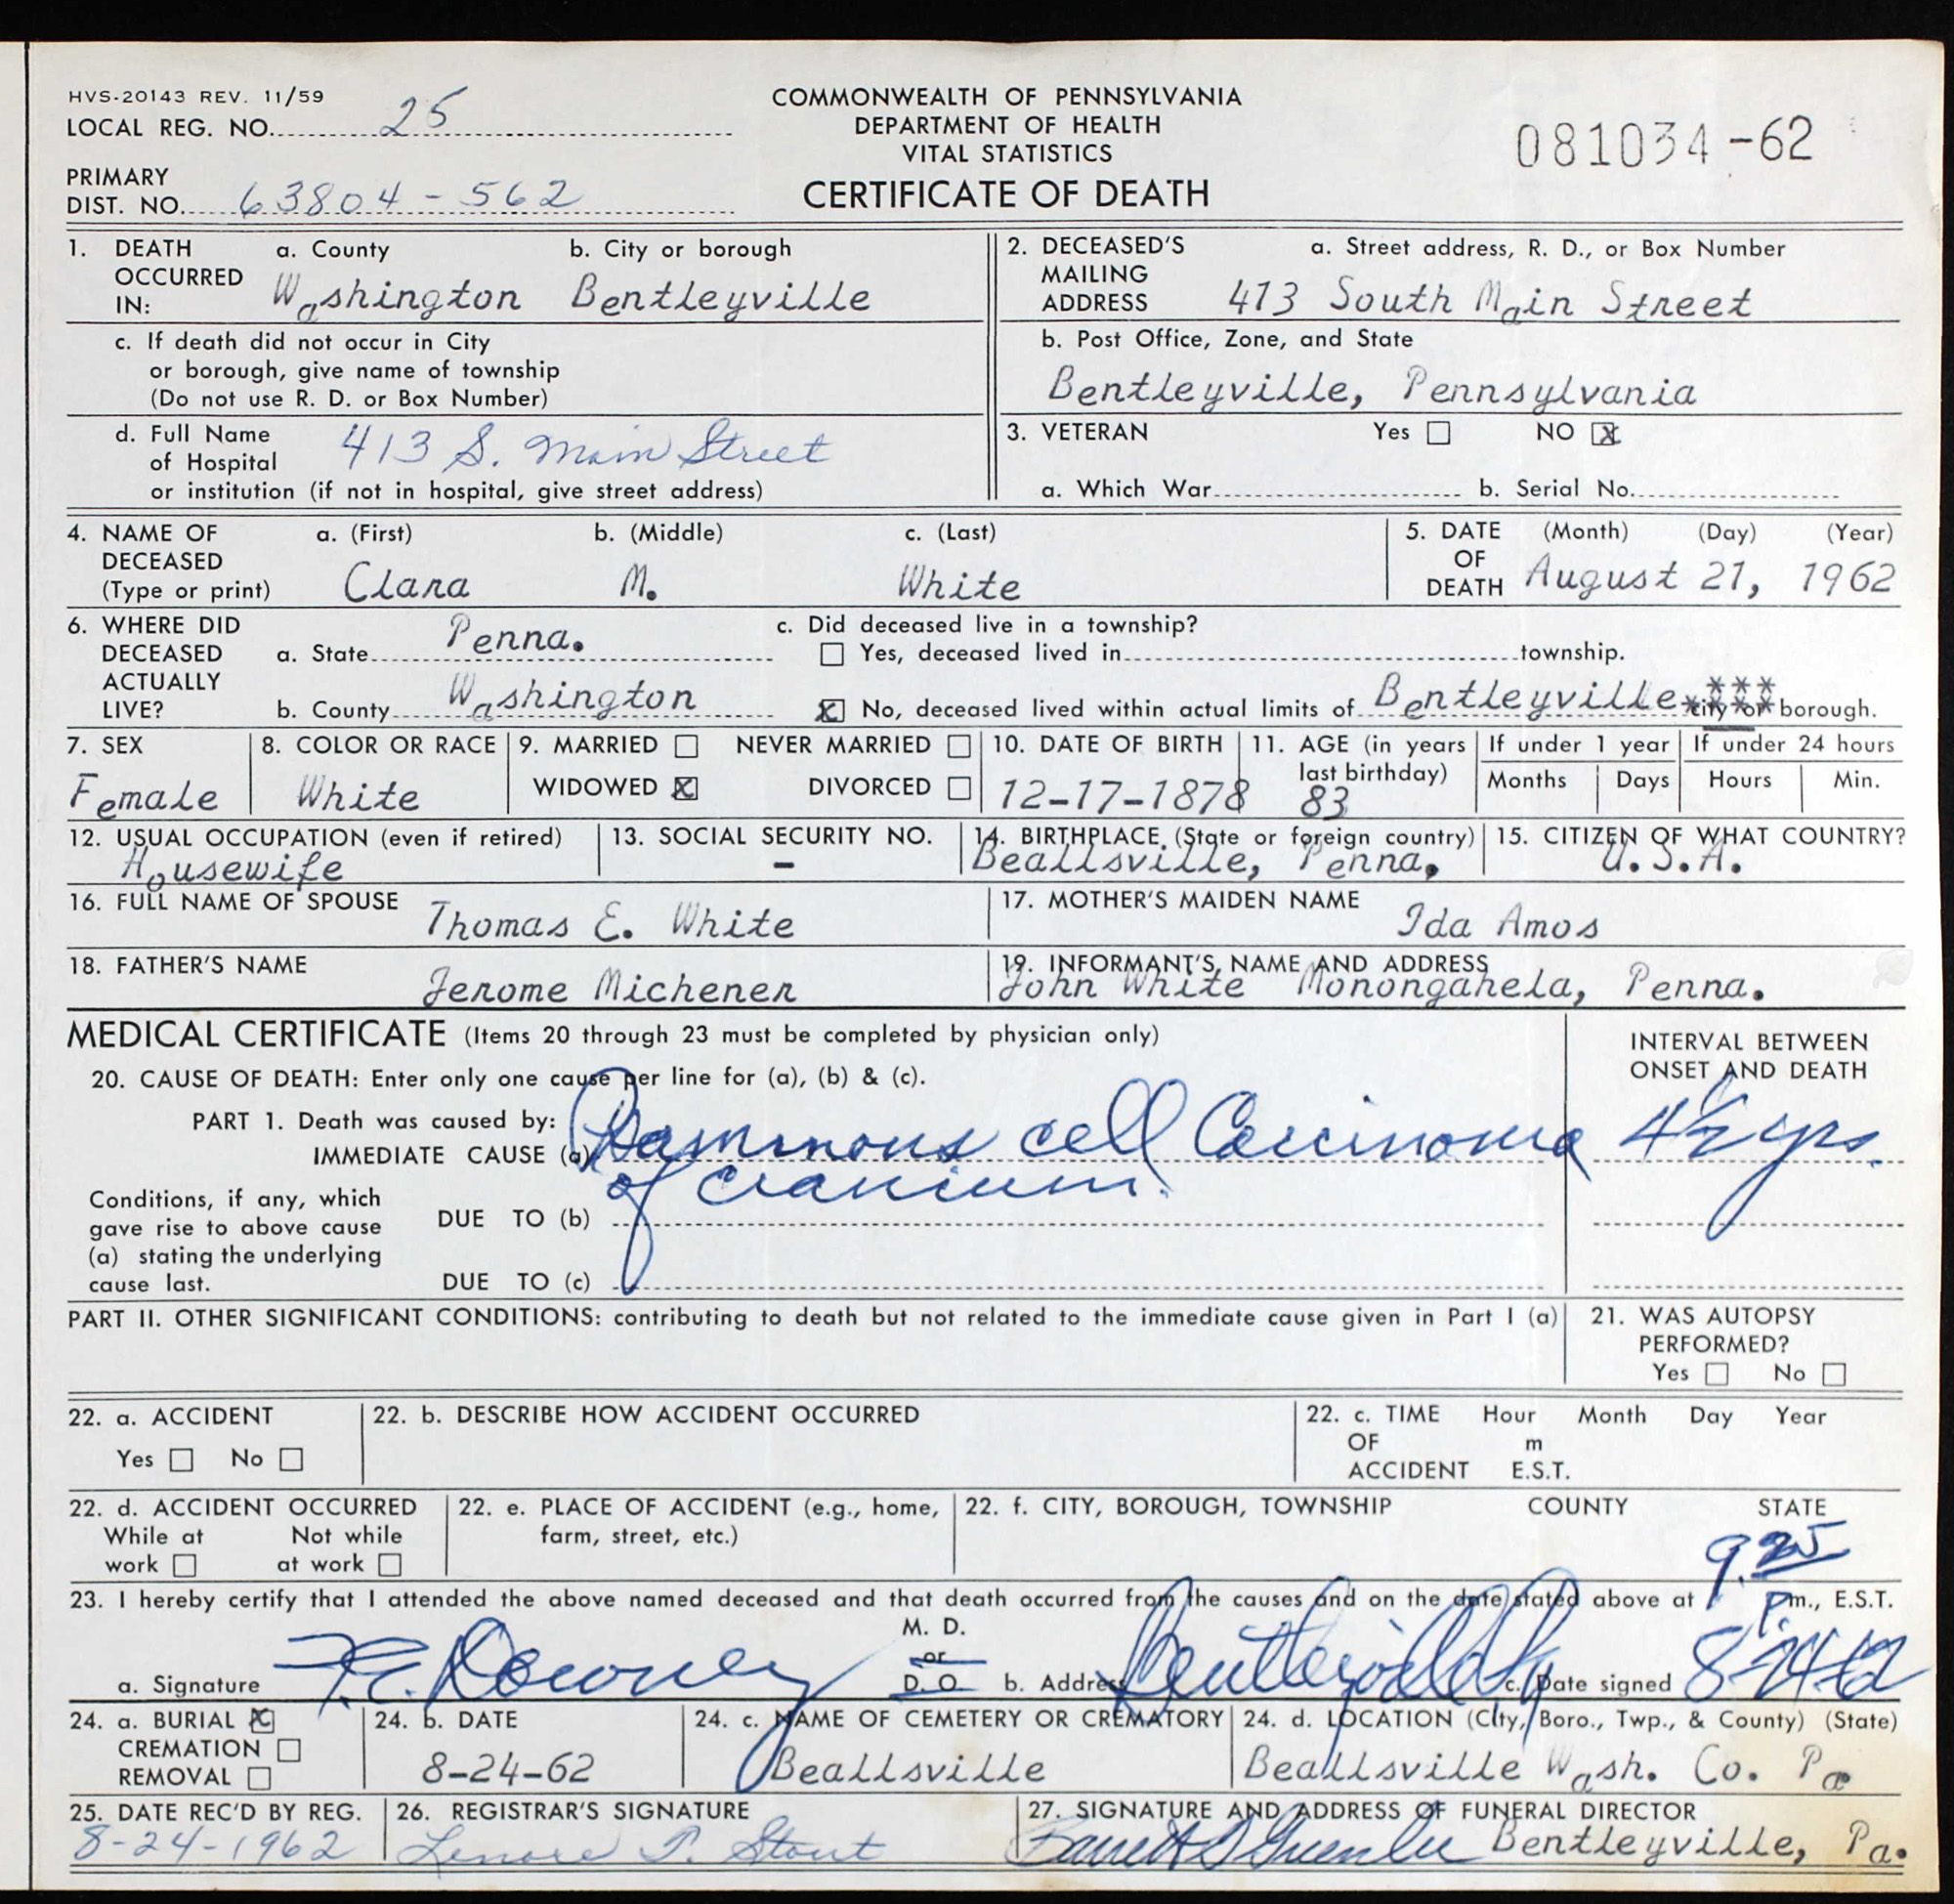 HVS-20143 REV. 11/59
LOCAL REG. NO. 25
COMMONWEALTH OF PENNSYLVANIA
DEPARTMENT OF HEALTH
VITAL STATISTICS
CERTIFICATE OF DEATH
081034-62
PRIMARY
DIST. NO. 63804-562
1. DEATH OCCURRED IN: a. County Washington b. City or borough Bentleyville
c. If death did not occur in City
or borough, give name of township
(Do not use R. D. or Box Number)
d. Full Name
of Hospital 413 S. Main Street
or institution (if not in hospital, give street address)
2. DECEASED'S MAILING ADDRESS a. Street address, R. D., or Box Number
413 South Main Street
b. Post Office, Zone, and State
Bentleyville, Pennsylvania
3. VETERAN Yes NO X
a. Which War b. Serial No.
4. NAME OF DECEASED (Type or print) a. (First) b. (Middle) c. (Last)
Clara M. White
5. DATE OF DEATH (Month) (Day) (Year)
August 21, 1962
6. WHERE DID DECEASED ACTUALLY LIVE?
a. State Penna.
b. County Washington
c. Did deceased live in a township?
Yes, deceased lived in township.
X No, deceased lived within actual limits of Bentleyville city or borough.
7. SEX Female
8. COLOR OR RACE White
9. MARRIED NEVER MARRIED
WIDOWED X DIVORCED
10. DATE OF BIRTH 12-17-1878
11. AGE (in years last birthday) 83
If under 1 year Months Days
If under 24 hours Hours Min.
12. USUAL OCCUPATION (even if retired)
Housewife
13. SOCIAL SECURITY NO.
-
14. BIRTHPLACE (State or foreign country)
Beallsville, Penna.
15. CITIZEN OF WHAT COUNTRY?
U.S.A.
16. FULL NAME OF SPOUSE Thomas E. White
17. MOTHER'S MAIDEN NAME Ida Amos
18. FATHER'S NAME Jerome Michener
19. INFORMANT'S NAME AND ADDRESS
John White Monongahela, Penna.
MEDICAL CERTIFICATE (Items 20 through 23 must be completed by physician only)
INTERVAL BETWEEN
ONSET AND DEATH
20. CAUSE OF DEATH: Enter only one cause per line for (a), (b) & (c).
PART 1. Death was caused by:
IMMEDIATE CAUSE (a) cell Carcinoma 4½ yrs.
of cranium.
Conditions, if any, which
gave rise to above cause
(a) stating the underlying
cause last.
DUE TO (b)
DUE TO (c)
PART II. OTHER SIGNIFICANT CONDITIONS: contributing to death but not related to the immediate cause given in Part I (a)
21. WAS AUTOPSY
PERFORMED?
Yes No
22. a. ACCIDENT
Yes No
22. b. DESCRIBE HOW ACCIDENT OCCURRED
22. c. TIME OF ACCIDENT Hour Month Day Year
m
E.S.T.
22. d. ACCIDENT OCCURRED
While at work Not while at work
22. e. PLACE OF ACCIDENT (e.g., home,
farm, street, etc.)
22. f. CITY, BOROUGH, TOWNSHIP COUNTY STATE
23. I hereby certify that I attended the above named deceased and that death occurred from the causes and on the date stated above at 9.25 P.m., E.S.T.
a. Signature Downey M. D. or D. O. b. Address Bentleyville Pa c. Date signed 8-24-62
24. a. BURIAL X
CREMATION
REMOVAL
24. b. DATE
8-24-62
24. c. NAME OF CEMETERY OR CREMATORY
Beallsville
24. d. LOCATION (City, Boro., Twp., & County) (State)
Beallsville Wash. Co. Pa
25. DATE REC'D BY REG.
8-24-1962
26. REGISTRAR'S SIGNATURE
Lenore P. Stout
27. SIGNATURE AND ADDRESS OF FUNERAL DIRECTOR
Bentleyville, Pa.